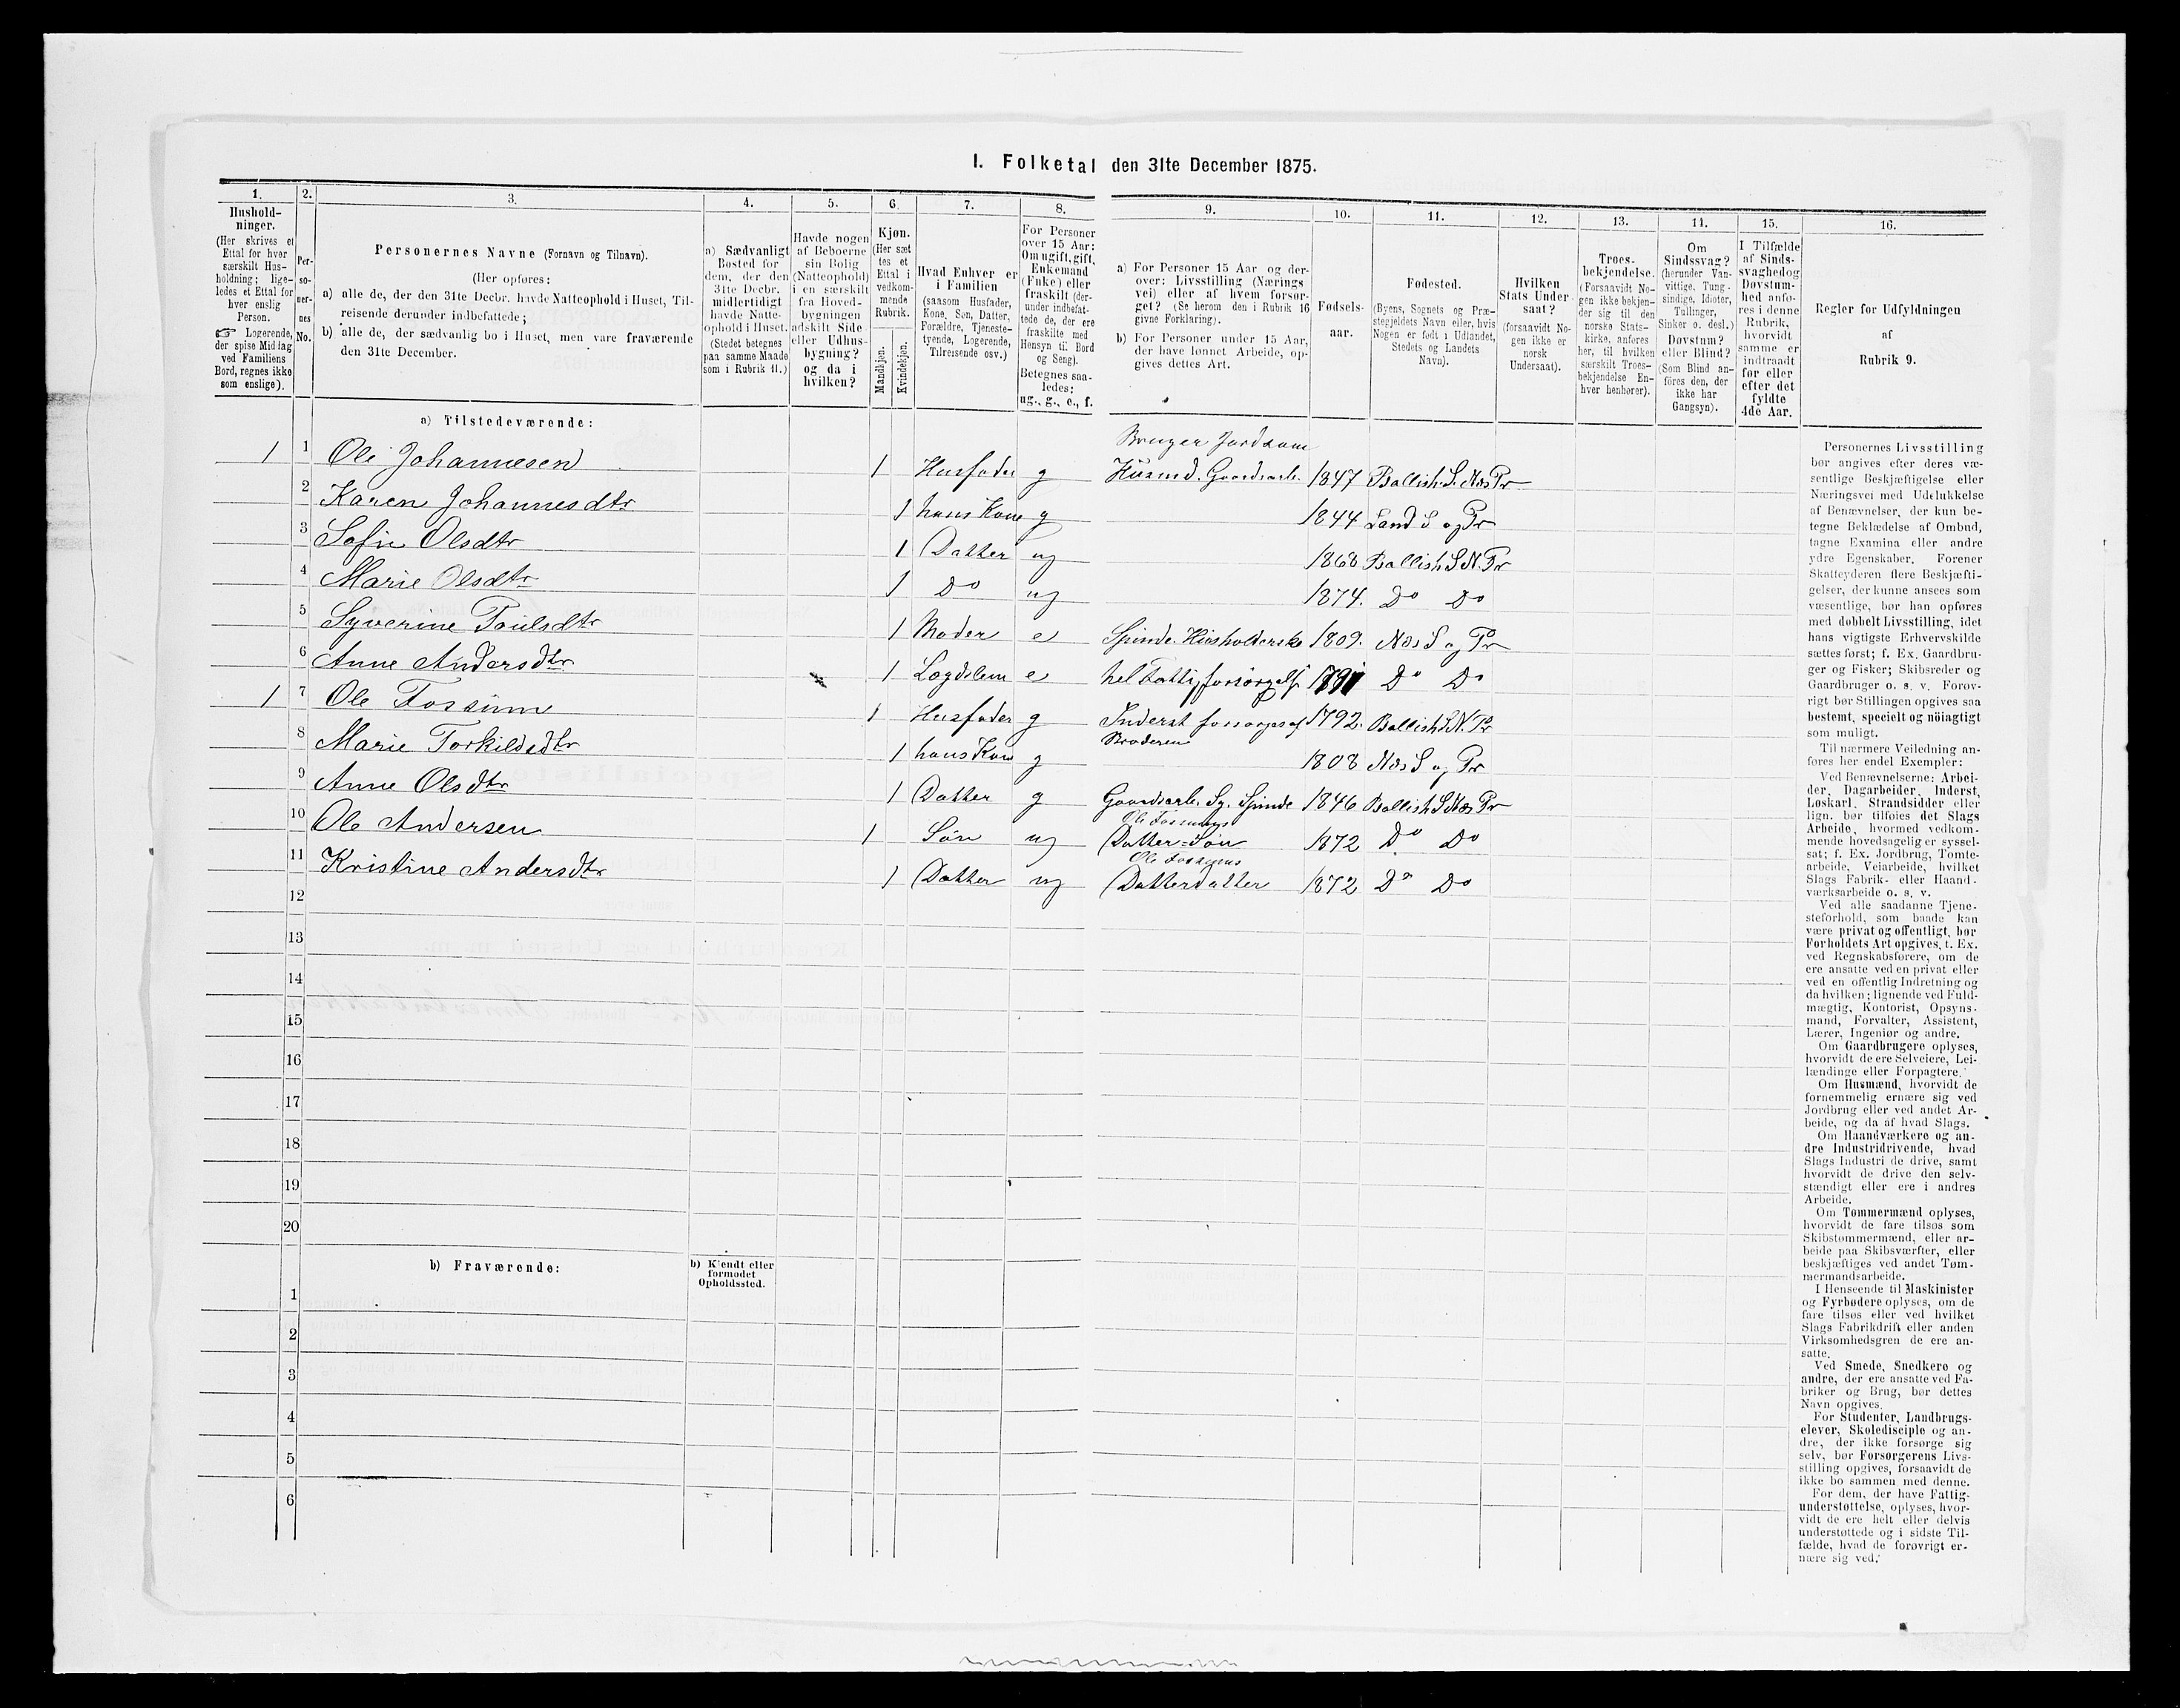 1. Folketal den 31te December 1875.
1. 2. 3. 4. 5. 6. 7. 8. 9. 10. 11. 12. 13. 14. 15. 16.
Hushold-
ninger.
(Her skrives et
Ettal for hver
særskilt Hus-
holdning; lige-
ledes et Ettal for
hver enslig
Person.
☞ Logerende,
der spise Middag
ved Familiens
Bord, regnes ikke
som enslige).
Per-
so-
ner-
nes
No.
Personernes Navne (Fornavn og Tilnavn).
(Her opføres:
a) alle de, der den 31te Decbr. havde Natteophold i Huset, Til-
reisende derunder indbefattede;
b) alle de, der sædvanlig bo i Huset, men vare fraværende
den 31te December.
a) Sædvanligt
Bosted for
dem, der den
31te Decbr.
midlertidigt
havde Natte-
ophold i Huset.
(Stedet betegnes
paa samme Maade
som i Rubrik 11.)
Havde nogen
af Beboerne
sin Bolig
(Natteophold)
i en særskilt
fra Hoved-
bygningen
adskilt Side-
eller Udhus-
bygning?
og da i
hvilken?
Kjøn.
(Her sæt-
tes et
Ettal i
vedkom-
mende
Rubrik.
Mandkjøn.
Kvindekjøn.
Hvad Enhver er
i Familien
(saasom Husfader,
Kone, Søn, Datter,
Forældre, Tjeneste-
tyende, Logerende,
Tilreisende osv.)
For Personer
over 15 Aar:
Om ugift, gift,
Enkemand
(Enke) eller
fraskilt (der-
under indbefat-
tede de, der ere
fraskilte med
Hensyn til Bord
og Seng).
Betegnes saa-
ledes:
ug., g., e., f.
a) For Personer 15 Aar og der-
over: Livsstilling (Nærings-
vei) eller af hvem forsør-
get? (Se herom den i Rubrik 16
givne Forklaring).
b) For Personer under 15 Aar,
der have lønnet Arbeide, op-
gives dettes Art.
Fødsels-
aar.
Fødested.
(Byens, Sognets og Præ-
stegjeldets Navn eller, hvis
Nogen er født i Udlandet,
Stedets og Landets
Navn).
Hvilken
Stats Under-
saat?
(forsaavidt No-
gen ikke er
norsk
Undersaat).
Troes-
bekjendelse.
(Forsaavidt No-
gen ikke bekjen-
der sig til den
norske Stats-
kirke, anføres
her, til hvilken
særskilt Troes-
bekjendelse En-
hver henhører).
Om
Sindssvag?
(herunder Van-
vittige, Tung-
sindige, Idioter,
Tullinger,
Sinker o. desl.)
Døvstum?
eller Blind?
(Som Blind an-
føres den, der
ikke har
Gangsyn).
I Tilfælde
af Sinds-
svaghed og
Døvstum-
hed anfø-
res i denne
Rubrik,
hvorvidt
samme er
indtraadt
før eller
efter det
fyldte
4de Aar.
Regler for Udfyldningen
af
Rubrik 9.
a) Tilstedeværende:
Bruger Jord som
1 1 Ole Johannesen 1 Husfader g Husmd. Gaardsarb. 1847 Ballish. S. Næs Pr
2 Karen Johannesdtr 1 hans Kone g 1844 Land S og Pr
3 Sofie Olsdtr 1 Datter ug 1868 Ballish S N. Pr
4 Marie Olsdtr 1 Do ug 1874. Do Do
5 Syverine Poulsdtr 1 Moder e Spinde. Husholderske 1809. Næs S og Pr
6 Anne Andersdtr 1 Lægdslem e hel Fattigforsørgelse Do Do
1 7 Ole Fossum 1 Husfader g Inderst forsørges af 1792. Ballish S N. Pr
Broderen
8 Marie Torkildsdtr 1 hans Kone g 1808 Næs S og Pr
9 Anne Olsdtr 1 Datter g Gaardsarb. Sy. Spinde 1846 Ballish S Næs Pr
Ole Fossums
10 Ole Andersen 1 Søn ug Datter=Søn 1872 Do Do
Ole Fossums
11 Kristine Andersdtr 1 Datter ug Datterdatter 1872 Do Do
12
13
14
15
16
17
18
19
20
b) Fraværende:
b) Kjendt eller
formodet
Opholdssted.
1
2
3
4
5
6
Personernes Livsstilling
bør angives efter deres væ-
sentlige Beskjæftigelse eller
Næringsvei med Udelukkelse
af Benævnelser, der kun be-
tegne Beklædelse af Ombud,
tagne Examina eller andre
ydre Egenskaber. Forener
Skatteyderen flere Beskjæfti-
gelser, der kunne ansees som
væsentlige, bør han opføres
med dobbelt Livsstilling, idet
hans vigtigste Erhvervskilde
sættes først; f. Ex. Gaardbru-
ger og Fisker; Skibsreder og
Gaardbruger o. s. v. Forøv-
rigt bør Stillingen opgives saa
bestemt, specielt og nöiagtigt
som muligt.
Til nærmere Veiledning an-
føres her endel Exempler:
Ved Benævnelserne: Arbei-
der, Dagarbeider, Inderst,
Løskarl, Strandsidder eller
lign. bør tilføies det Slags
Arbeide, hvormed vedkom-
mende hovedsagelig er syssel-
sat; f. Ex. Jordbrug, Tomte-
arbeide, Veiarbeide, hvilket
Slags Fabrik- eller Haand-
værksarbeide o. s. v.
Ved alle saadanne Tjene-
steforhold, som baade kan
være privat og offentligt, bør
Forholdets Art opgives, t. Ex.
ved Regnskabsførere, om de
ere ansatte ved en privat eller
ved en offentlig Indretning og
da hvilken; lignende ved Fuld-
mægtig, Kontorist, Opsyns-
mand, Forvalter, Assistent,
Lærer, Ingeniør og andre.
Om Gaardbrugere oplyses,
hvorvidt de ere Selveiere, Lei-
lændinge eller Forpagtere.
Om Husmænd, hvorvidt de
fornemmelig ernære sig ved
Jordbrug eller ved andet Ar-
beide, og da af hvad Slags.
Om Haandværkere og an-
dre Industridrivende, hvad
Slags Industri de drive, samt
hvorvidt de drive den selv-
stændigt eller ere i andres
Arbeide.
Om Tømmermænd oplyses,
hvorvidt de fare tilsøs som
Skibstømmermænd, eller ar-
beide paa Skibsværfter, eller
beskjæftiges ved andet Tøm-
mermandsarbeide.
I Henseende til Maskinister
og Fyrbødere oplyses, om de
fare tilsøs eller ved hvilket
Slags Fabrikdrift eller anden
Virksomhedsgren de ere an-
satte.
Ved Smede, Snedkere og
andre, der ere ansatte ved Fa-
briker og Brug, bør dettes
Navn opgives.
For Studenter, Landbrugs-
elever, Skoledisciple og an-
dre, der ikke forsørge sig
selv, bør Forsørgerens Livs-
stilling opgives, forsaavidt de
ikke bo sammen med denne.
For dem, der have Fattig-
understøttelse, oplyses, hvor-
vidt de ere helt eller delvis
understøttede og i sidste Til-
fælde, hvad de forøvrigt er-
nære sig ved.